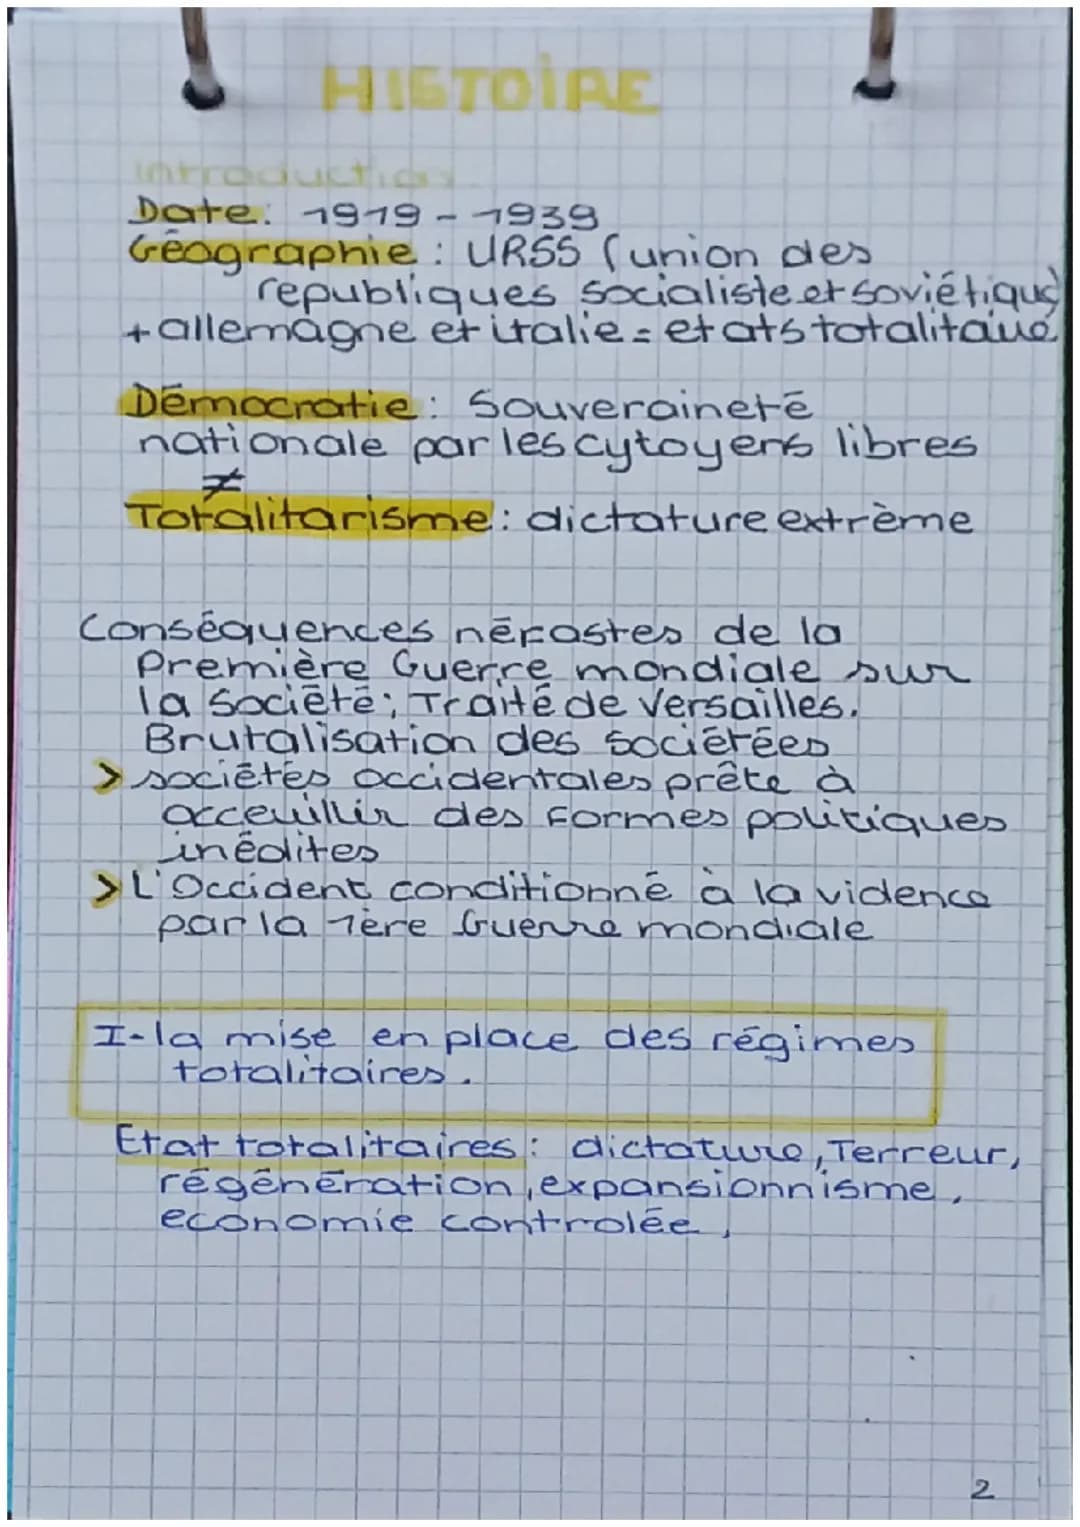 HISTOIRE
Introduction.
Date: 1919 - 1939
Géographie : URSS (union des
republiques socialiste et soviétique)
+ allemagne et italie = etats totalitaire
Démocratie : Souveraineté
nationale par les cytoyens libres
≠
Totalitarisme : dictature extrème
Conséquences néfastes de la
Première Guerre mondiale sur
la société ; Traité de Versailles.
Brutalisation des sociétées
> sociétés occidentales prête à
acceuillir des formes politiques
inédites
> L'Occident conditionné à la vidence
par la 1ère Guerre mondiale
I- la mise en place des régimes
totalitaires.
Etat totalitaires : dictature, Terreur,
régénération, expansionnisme,
economie controlée,
2